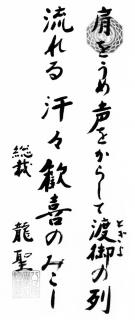 肩をうめ声をからして渡御の列
とぎょ
流れる汗々歓喜のみこし
総裁
龍聖